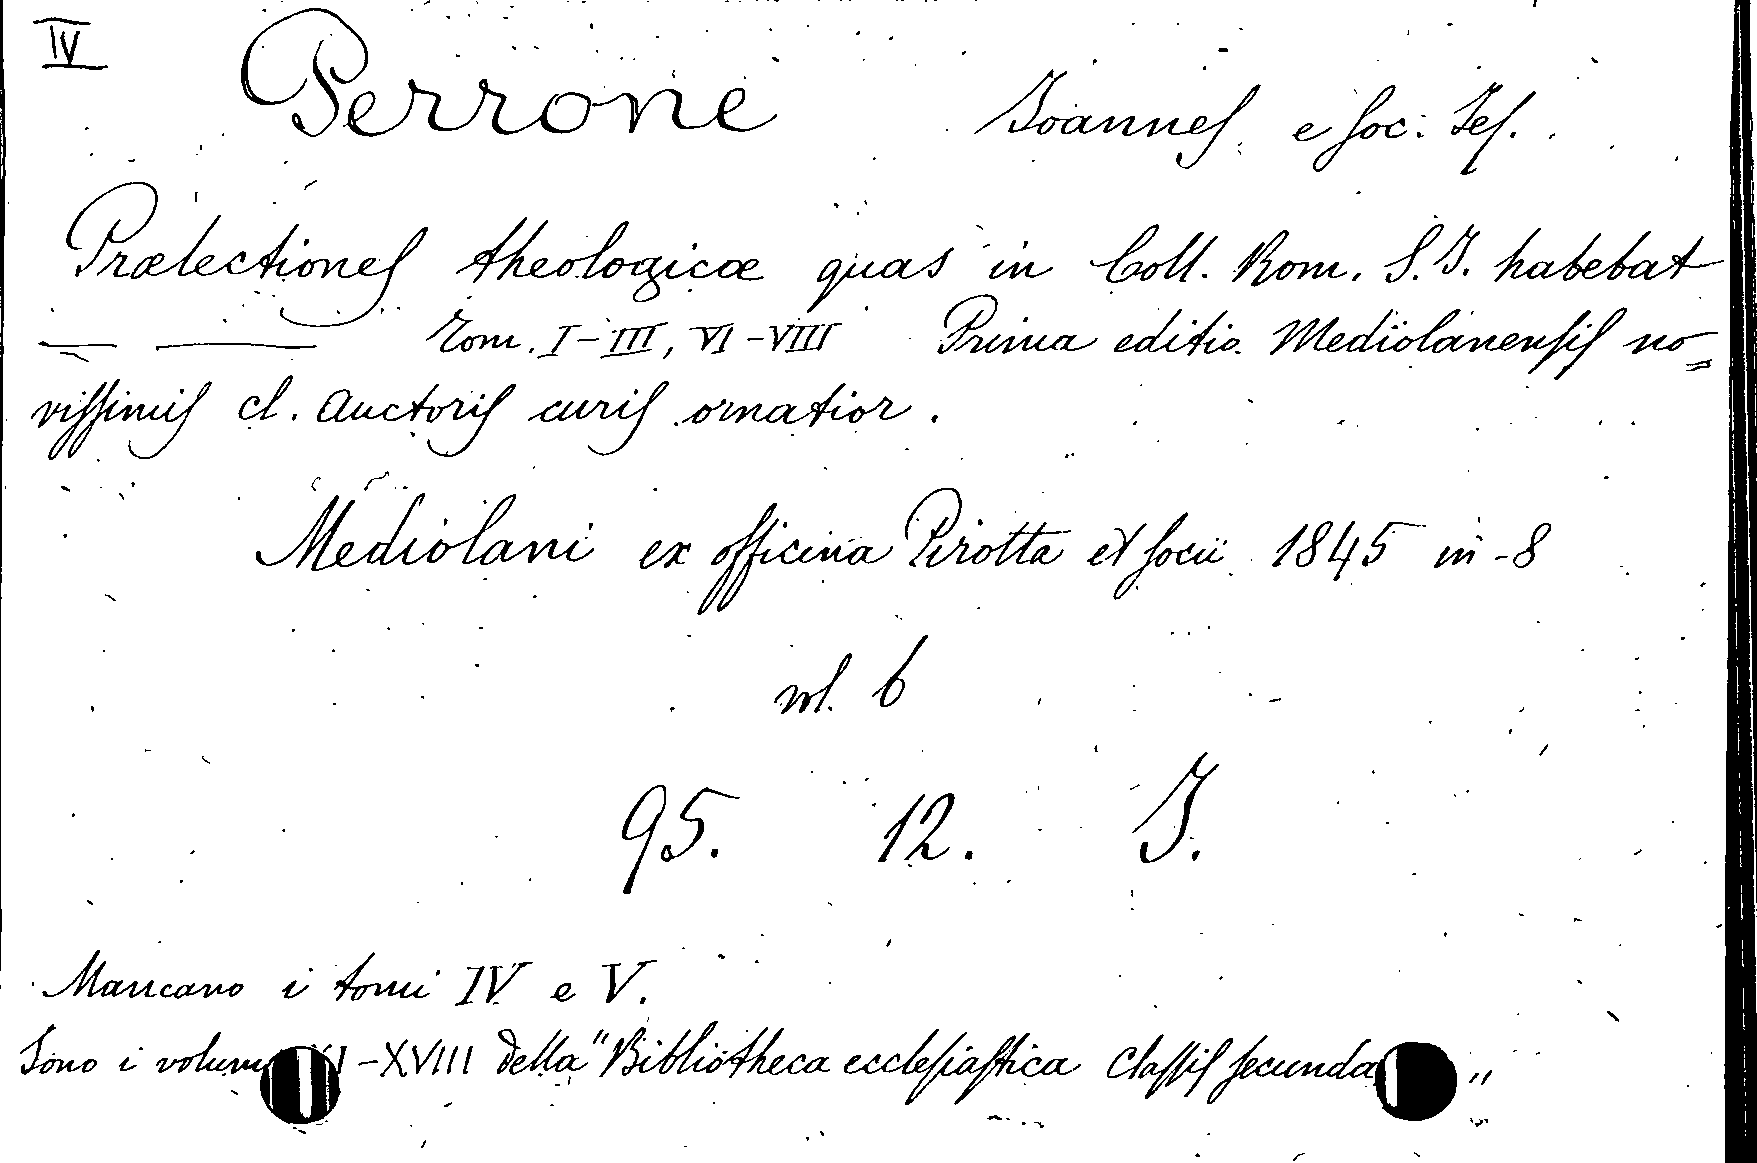 IV
Perrone Joannes e Soc. Jes.
Prælectiones theologicæ quas in Coll. Rom. S. J. habebat
Tom. I-III, VI-VIII Prima editio Mediolanensis no=
vissimis cl. Auctoris curis ornatior.
Mediolani ex officina Pirotta et socii 1845 in-8
vol. 6
95. 12. J.
Mancano i tomi IV e V.
Sono i -XVIII della "Bibliotheca ecclesiastica Classis secunda "